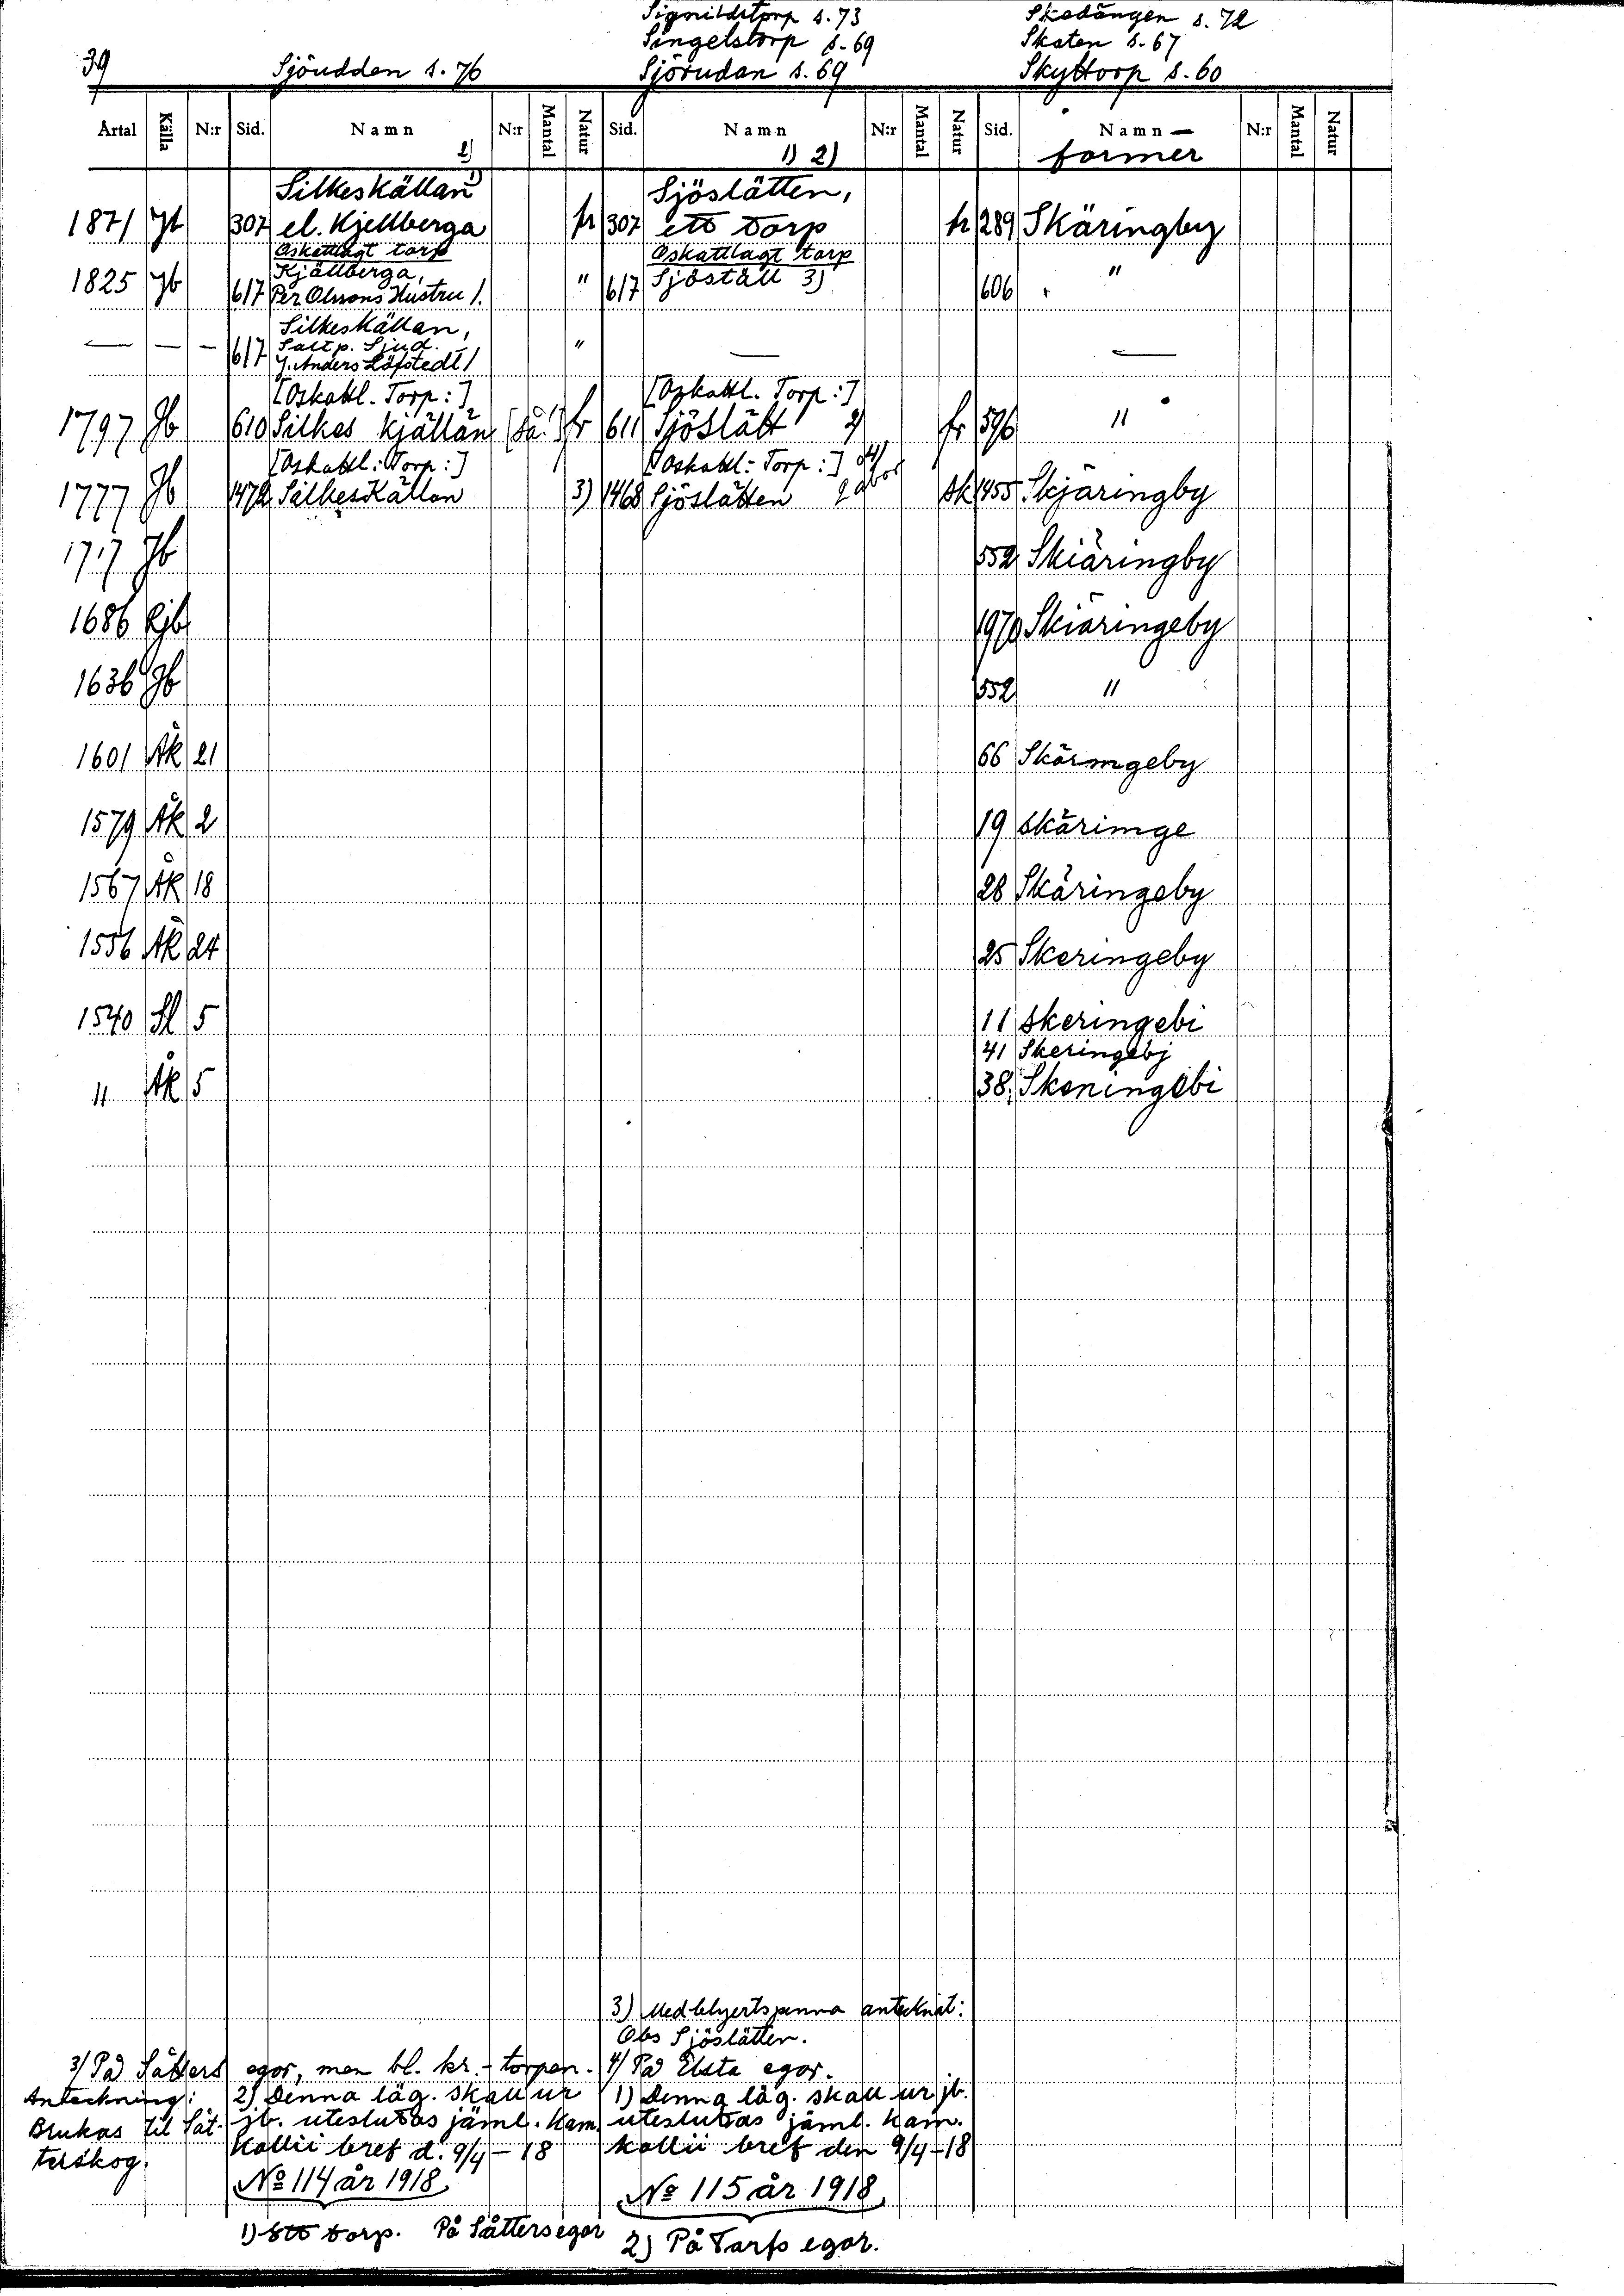 Signildstorp s. 73
Skedängen s. 72
Singelstorp s. 69
Skaten s. 67
39
Sjöudden s. 76
Sjörudan s. 69
Skyttorp s. 60
Årtal Källa N:r Sid. Namn 2) N:r Mantal Natur Sid. Namn 1) 2) N:r Mantal Natur Sid. Namn — former N:r Mantal Natur
Silkeskällan 1)
Sjöslätten,
1871 Jb 307 el. Kjellberga fr 307 ett torp fr 289 Skäringby
Oskattlagt torp
Oskattlagt torp
Kjällberga,
1825 Jb 617 Per Olssons Hustru /. " 617 Sjöställ 3) 606 "
Silkeskällan,
— — — 617 Saltp. Sjud. " — —
J. Anders Löfstedt /
[Oskattl. Torp:]
[Oskattl. Torp:]
1797 Jb 610 Silkes kjällän [så!] fr 611 Sjöslätt 2) fr 596 "
[Oskattl: Torp:]
[Oskattl: Torp:] 4)
1777 Jb 1472 Silkeskällan 3) 1468 Sjöslätten 2 åbor Sk 1455 Skjäringby
1717 Jb 552 Skiäringby
1686 Rjb 1970 Skiäringeby
1636 Jb 552 "
1601 Åk 21 66 Skärmgeby
1579 Åk 2 19 skärimge
1567 Åk 18 28 Skäringeby
1556 Åk 24 25 Skeringeby
1540 Sl 5 11 skeringebi
41 Skeringebj
" Åk 5 38 Skeningebi
3) Med blyertspenna antecknat:
Obs Sjöslätten.
3/ På Sätters egor, men bl. kr.-torpen.
4/ På Elsta egor.
Anteckning:
Brukas til Sät-
terskog.
2) Denna läg. skall ur
jb. uteslutas jäml. Kam.
Kollii bref d. 9/4 - 18
No 114 år 1918.
1) Denna läg. skall ur jb.
uteslutas jäml. Kam.
kollii bref den 9/4-18
No 115 år 1918.
1) Ett torp. På Sätters egor
2) På Tarfs egor.